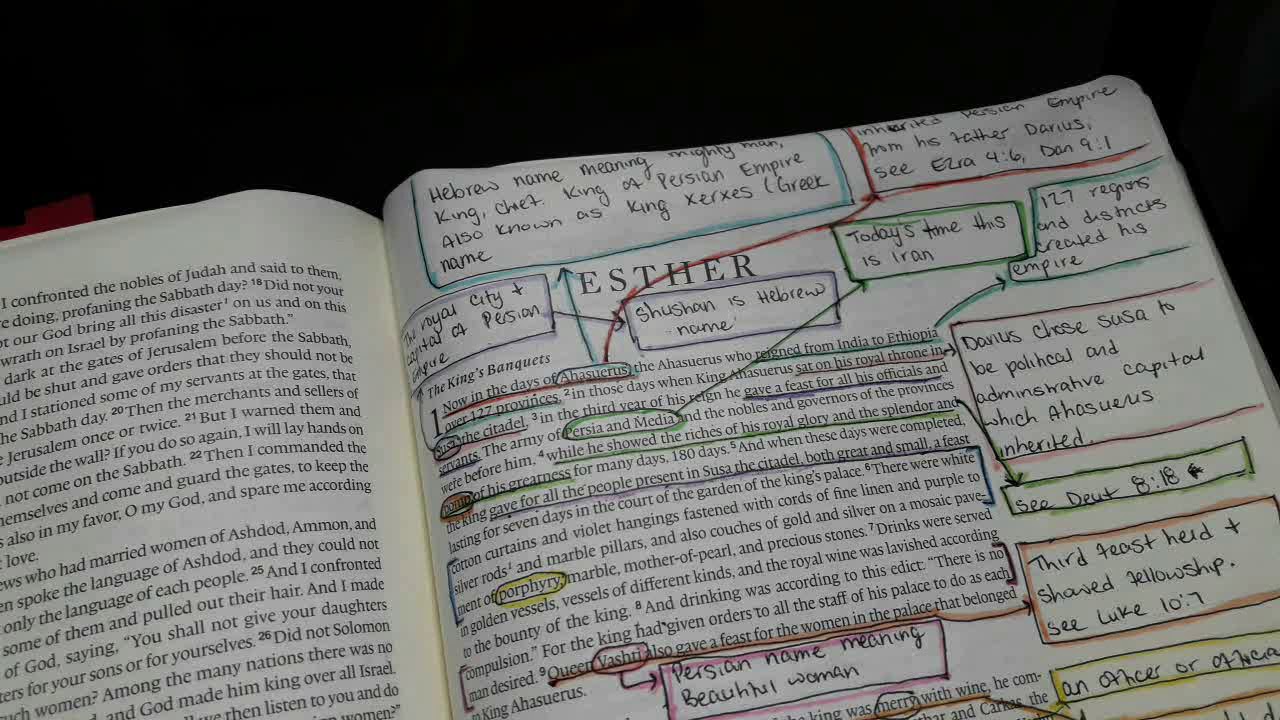 I confronted the nobles of Judah and said to them,
re doing, profaning the Sabbath day? 18 Did not your
ot our God bring all this disaster on us and on this
wrath on Israel by profaning the Sabbath."
dark at the gates of Jerusalem before the Sabbath,
uld be shut and gave orders that they should not be
nd I stationed some of my servants at the gates, that
he Sabbath day. 20 Then the merchants and sellers of
e Jerusalem once or twice. 21 But I warned them and
outside the wall? If you do so again, I will lay hands on
not come on the Sabbath. 22 Then I commanded the
hemselves and come and guard the gates, to keep the
also in my favor, O my God, and spare me according
t love.
ews who had married women of Ashdod, Ammon, and
en spoke the language of Ashdod, and they could not
only the language of each people. 25 And I confronted
some of them and pulled out their hair. And I made
of God, saying, "You shall not give your daughters
ters for your sons or for yourselves. 26 Did not Solomon
uch women? Among the many nations there was no
and God made him king over all Israel.
ve then listen to you and do
women?"
Hebrew name meaning mighty man,
King, chief. King of Persian Empire
Also known as King Xerxes (Greek
name
inherited Persian Empire
from his father Darius,
see Ezra 4:6, Dan 9:1
Today's time this
is Iran
127 regions
and districts
created his
empire
ESTHER
The royal City +
capital of Persian
empire
Shushan is Hebrew
name
The King's Banquets
1 Now in the days of Ahasuerus, the Ahasuerus who reigned from India to Ethiopia
over 127 provinces, 2 in those days when King Ahasuerus sat on his royal throne in
Susa the citadel, 3 in the third year of his reign he gave a feast for all his officials and
servants. The army of Persia and Media and the nobles and governors of the provinces
were before him, 4 while he showed the riches of his royal glory and the splendor and
pomp of his greatness for many days, 180 days. 5 And when these days were completed,
the king gave for all the people present in Susa the citadel, both great and small, a feast
lasting for seven days in the court of the garden of the king's palace. 6 There were white
cotton curtains and violet hangings fastened with cords of fine linen and purple to
silver rods and marble pillars, and also couches of gold and silver on a mosaic pave-
ment of porphyry, marble, mother-of-pearl, and precious stones. 7 Drinks were served
in golden vessels, vessels of different kinds, and the royal wine was lavished according
to the bounty of the king. 8 And drinking was according to this edict: "There is no
compulsion." For the king had given orders to all the staff of his palace to do as each
man desired. 9 Queen Vashti also gave a feast for the women in the palace that belonged
to King Ahasuerus.
the king was merry with wine, he com-
and Carkas, the
Darius chose Susa to
be political and
adminstrative capital
which Ahasuerus
inherited.
See Deut 8:18
Third feast held +
shared fellowship.
see Luke 10:7
Persian name meaning
Beautiful woman
an officer or